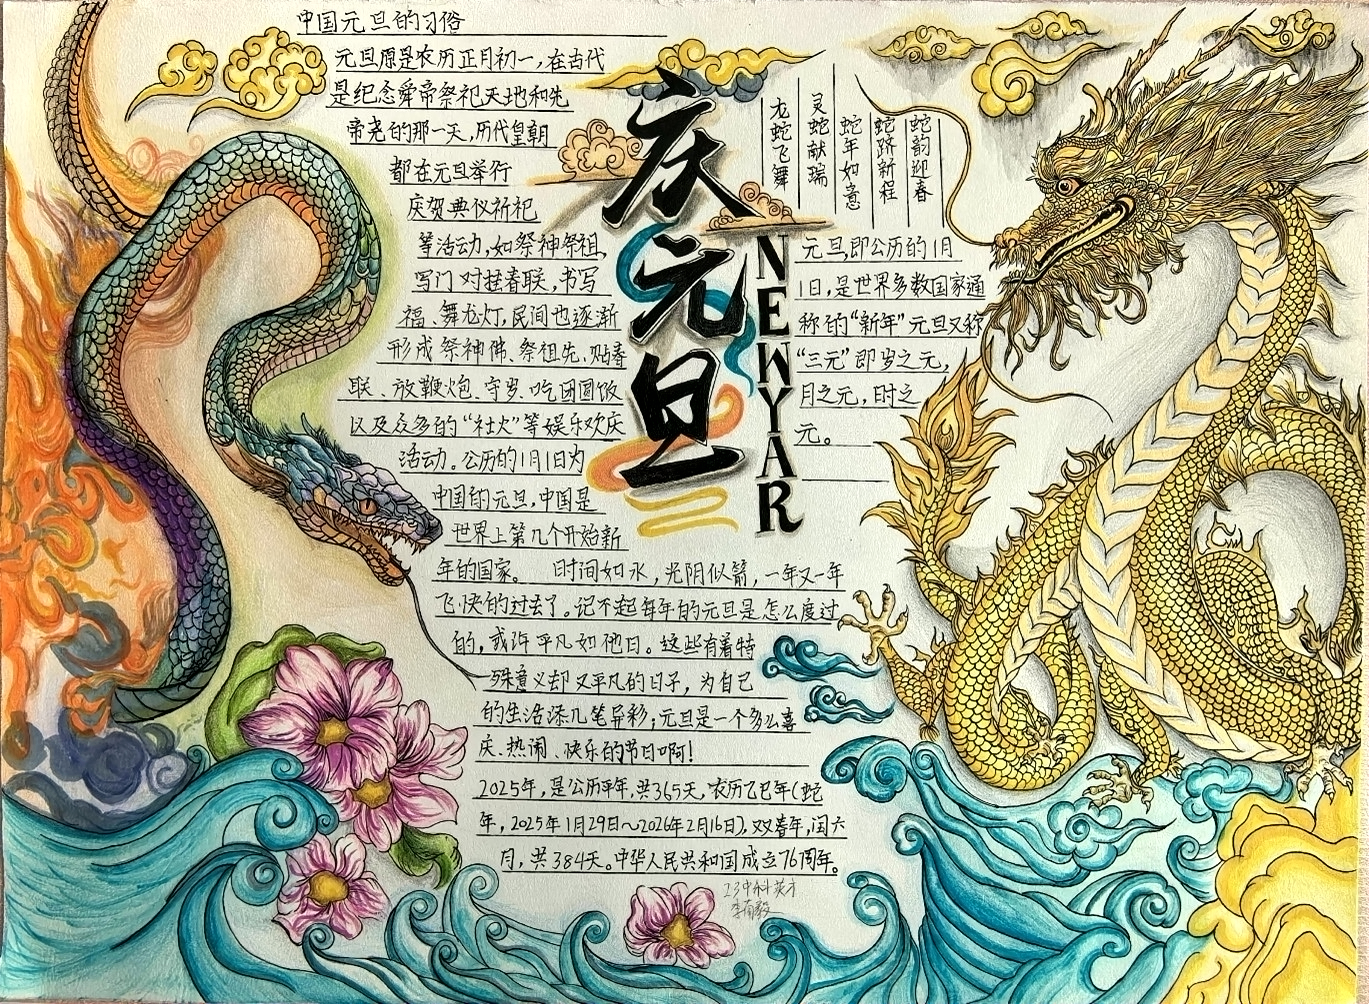 中国元旦的习俗
元旦原是农历正月初一，在古代
是纪念舜帝祭祀天地和先
帝尧的那一天，历代皇朝
都在元旦举行
庆贺典仪祈祀
等活动，如祭神祭祖，
写门对挂春联，书写
福、舞龙灯，民间也逐渐
形成祭神佛、祭祖先、贴春
联、放鞭炮、守岁、吃团圆饭
以及众多的“社火”等娱乐欢庆
活动。公历的1月1日为
中国的元旦，中国是
世界上第几个开始新
年的国家。 时间如水，光阴似箭，一年又一年
飞快的过去了。记不起每年的元旦是怎么度过
的，或许平凡如他日。这些有着特
殊意义却又平凡的日子，为自己
的生活添几笔异彩；元旦是一个多么喜
庆、热闹、快乐的节日啊！
2025年，是公历平年，共365天，农历乙巳年（蛇
年，2025年1月29日～2026年2月16日），双春年，闰六
月，共384天。中华人民共和国成立76周年。
庆元旦
NEWYAR
龙蛇飞舞
灵蛇献瑞
蛇年如意
蛇跻新程
蛇韵迎春
元旦，即公历的1月
1日，是世界多数国家通
称的“新年”元旦又称
“三元”即岁之元，
月之元，时之
元。